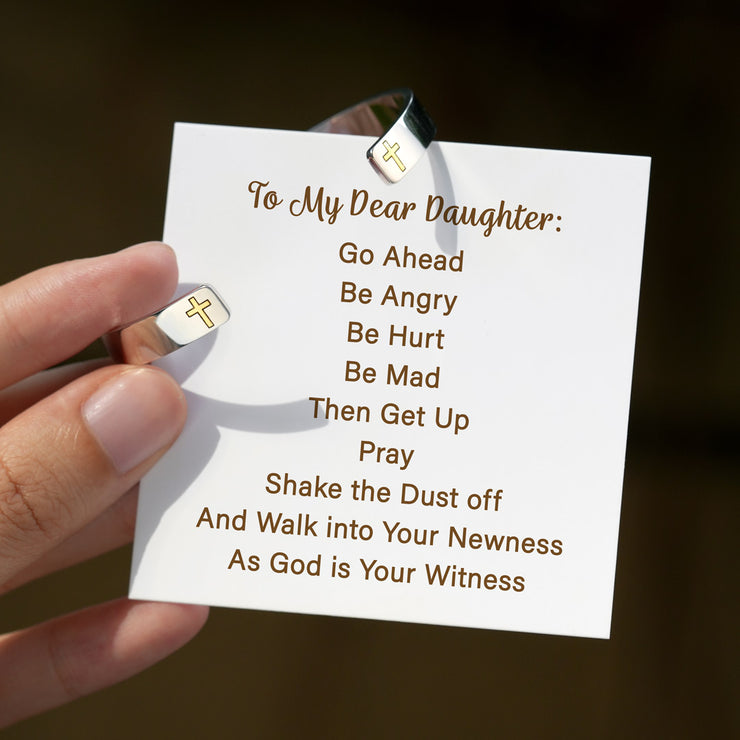 To My Dear Daughter:
Go Ahead
Be Angry
Be Hurt
Be Mad
Then Get Up
Pray
Shake the Dust off
And Walk into Your Newness
As God is Your Witness